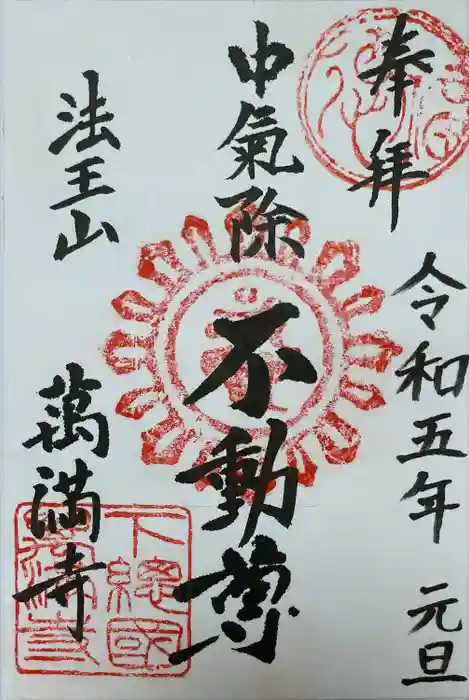 奉拝
令和五年 元旦
中氣除
不動尊
法王山
萬満寺
下總國
萬満寺